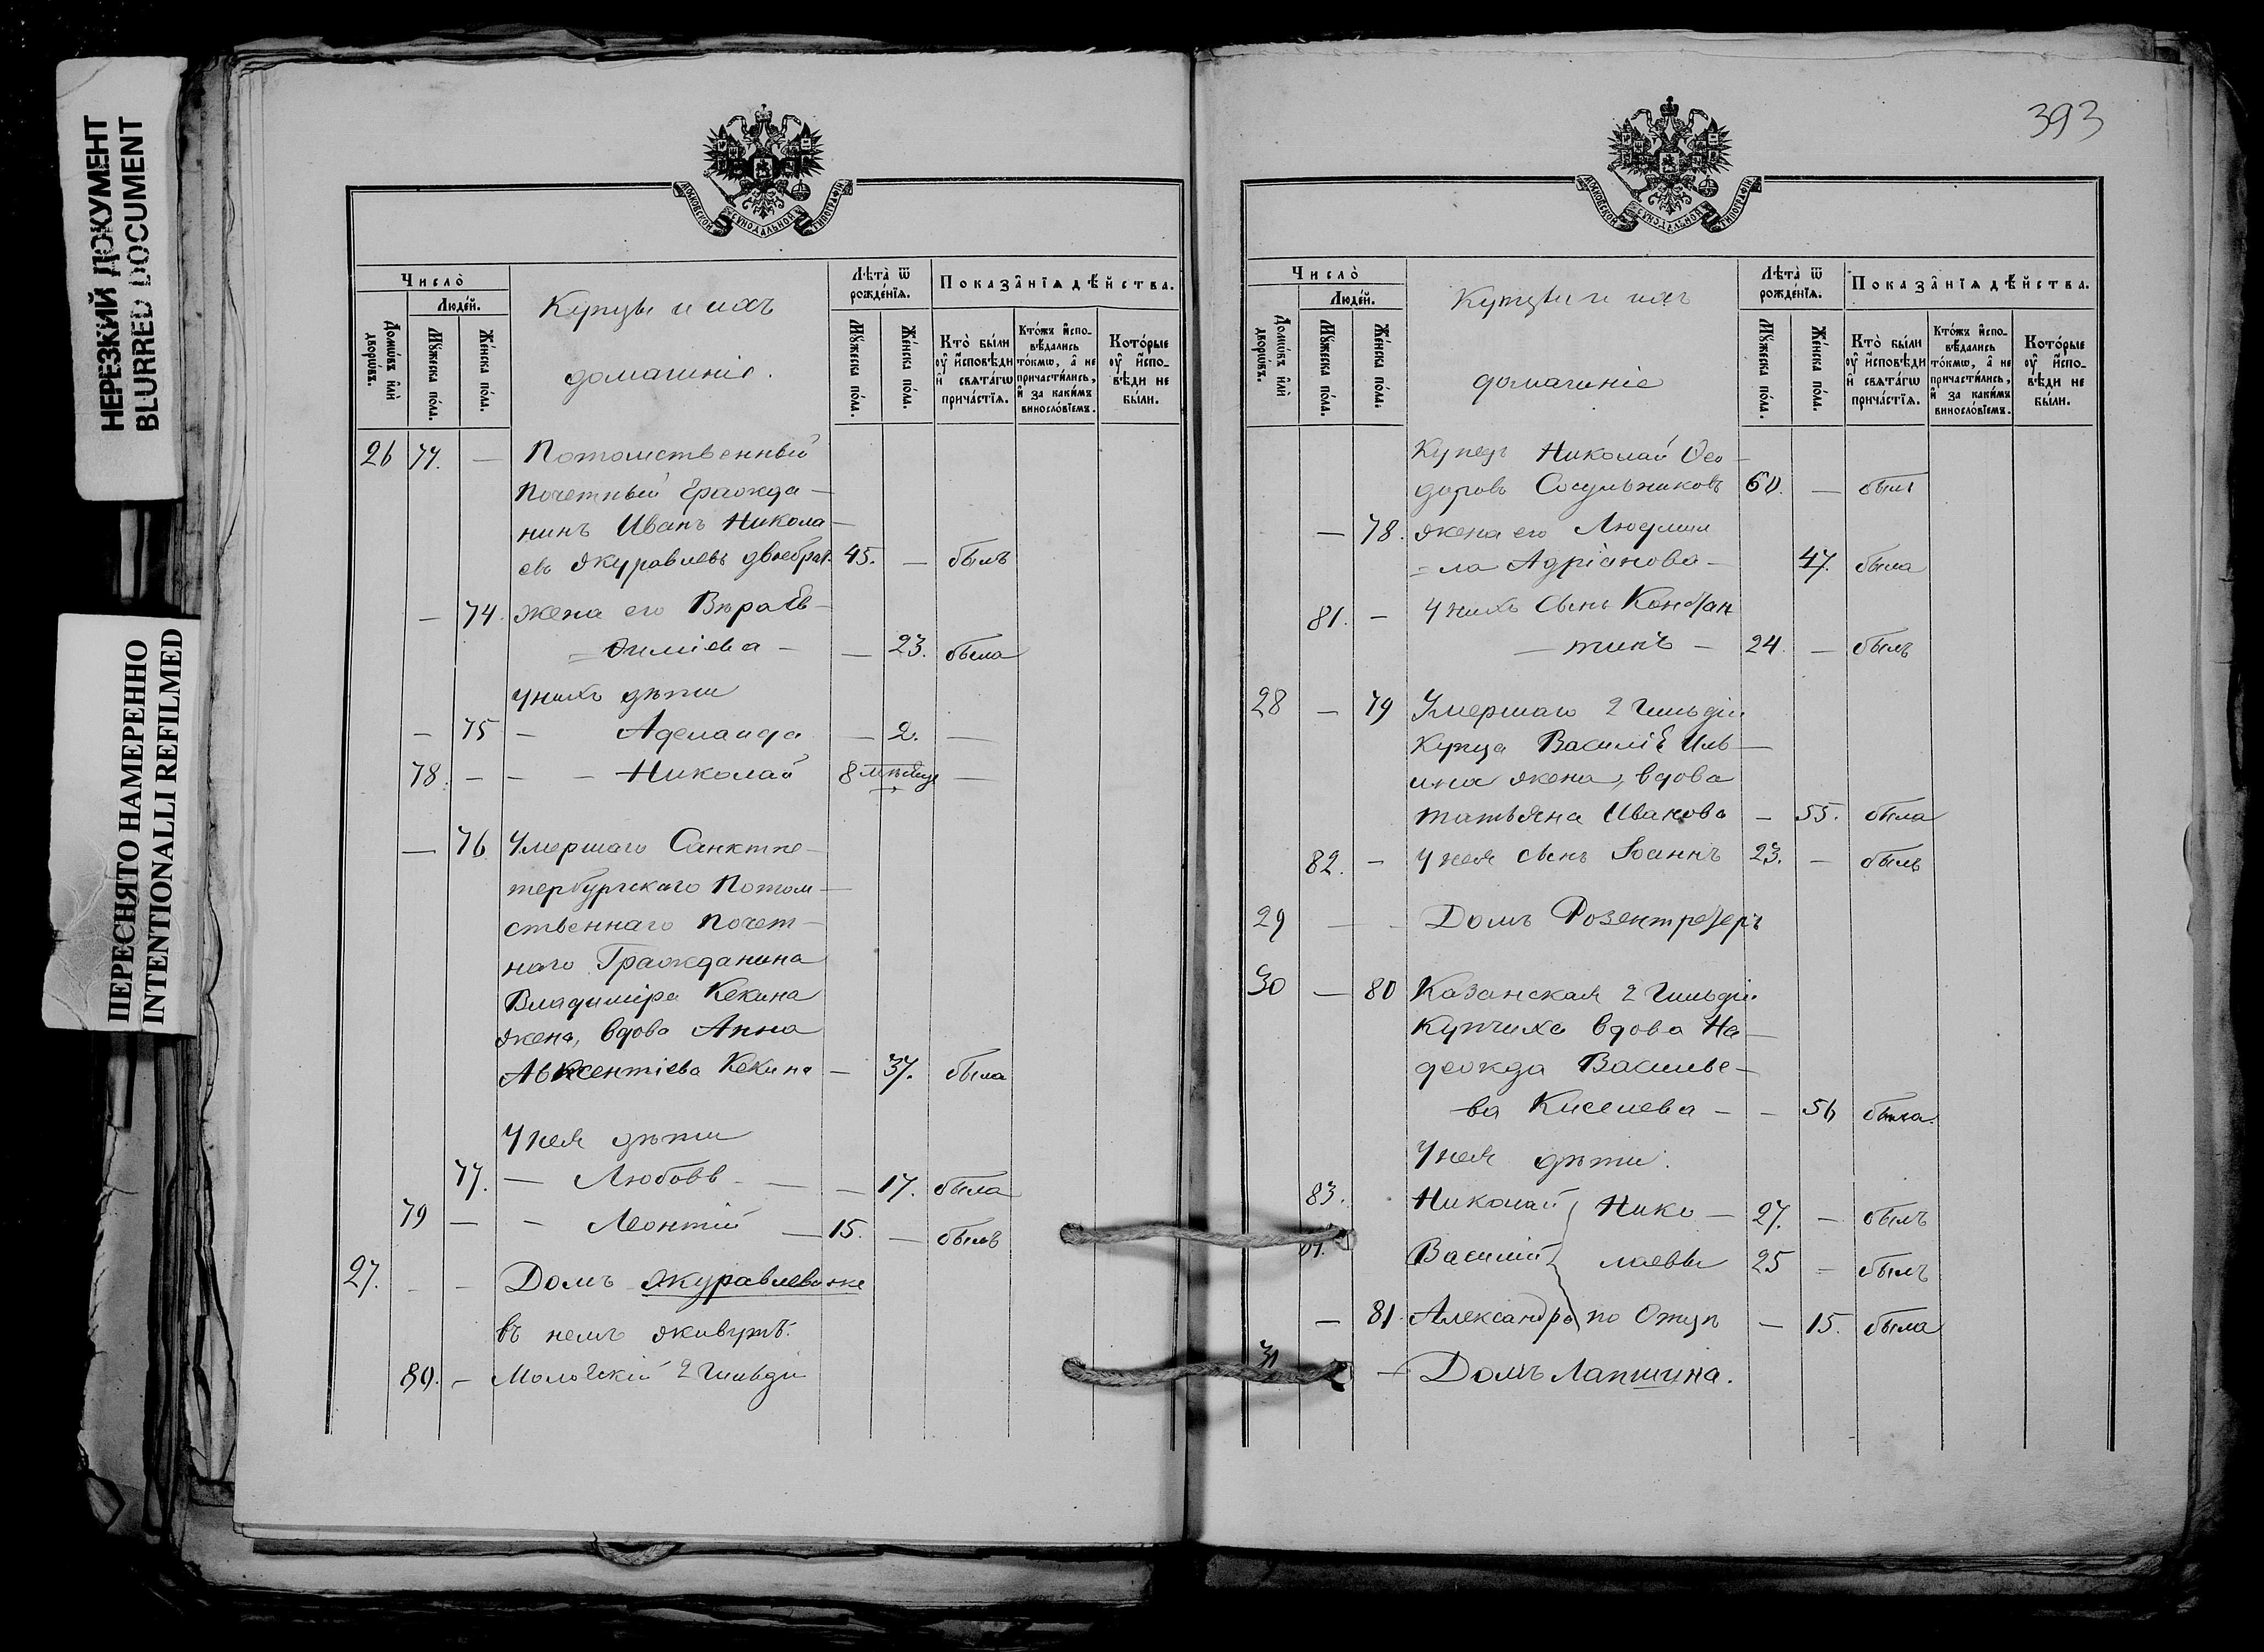 НЕРЕЗКИЙ ДОКУМЕНТ
BLURRED DOCUMENT
ПЕРЕСНЯТО НАМЕРЕННО
INTENTIONALLI REFILMED
МОСКОВСКОЙ СУНОДАЛЬНОЙ ТИПОГРАФІИ
Число̀
Люде́й.
Домѡ́въ и҆лѝ дворѡ́въ.
Мꙋ́жеска по́ла.
Же́нска по́ла.
Купцы и ихъ
домашніе.
Лѣ́та ѿ рожде́нїѧ.
Мꙋ́жеска по́ла.
Же́нска по́ла.
Показа̑нїѧ дѣ́йства.
Кто̀ бы́ли оу҆ и҆сповѣ́ди и҆ свѧта́гѡ прича́стїѧ.
Кто́жъ и҆сповѣ́дались то́кмѡ, а҆ не причасти́лись, и҆ за каки́мъ винословїемъ.
Кото́рые оу҆ и҆сповѣ́ди не бы́ли.
26 77. — Потомственный
Почетный Гражда-
нинъ Иванъ Никола-
евъ Журавлевъ двоебрач. 45. — былъ
— 74. жена его Вѣра Ев-
= фиміева — — 23. была
у нихъ дѣти
— 75 — Аделаида — 2. —
78. — — Николай 8 мѣсяц —
— 76 Умершаго Санктпе-
тербургскаго Потом-
ственнаго Почет-
наго Гражданина
Владиміра Кекина
жена, вдова Анна
Авксентіева Кекина — 37. была
У нея дѣти
77. — Любовь — — 17. была
79 — — Леонтій — 15. — былъ
27. — — Домъ Журавлева же
въ немъ живутъ.
80. — Мологскій 2 гильдіи
393
МОСКОВСКОЙ СУНОДАЛЬНОЙ ТИПОГРАФІИ
Число̀
Люде́й.
Домѡ́въ и҆лѝ дворѡ́въ.
Мꙋ́жеска по́ла.
Же́нска по́ла.
Купцы и ихъ
домашніе
Лѣ́та ѿ рожде́нїѧ.
Мꙋ́жеска по́ла.
Же́нска по́ла.
Показа̑нїѧ дѣ́йства.
Кто̀ бы́ли оу҆ и҆сповѣ́ди и҆ свѧта́гѡ прича́стїѧ.
Кто́жъ и҆сповѣ́дались то́кмѡ, а҆ не причасти́лись, и҆ за каки́мъ винословїемъ.
Кото́рые оу҆ и҆сповѣ́ди не бы́ли.
Купецъ Николай Ѳео-
доровъ Сосульниковъ 60. — былъ
— 78. жена его Людми-
= ла Адріанова — 47. была
81. — У нихъ сынъ Констан
— тинъ — 24. — былъ
28 — 79 Умершаго 2 гильдіи
Купца Василія Иль-
ина жена, вдова
Татьяна Иванова — 55. была
82. — У нея сынъ Іоаннъ 23. — былъ
29 — — Домъ Розентретеръ
30 — 80 Казанская 2 гильдіи
Купчиха вдова На-
дежда Василье-
ва Киселева — — 56 была.
У нея дѣти.
83. Николай Нико — 27. — былъ
Василій лаевы 25 — былъ
— 81. Александра по Отцу — 15. была
31 — Домъ Лапшина.